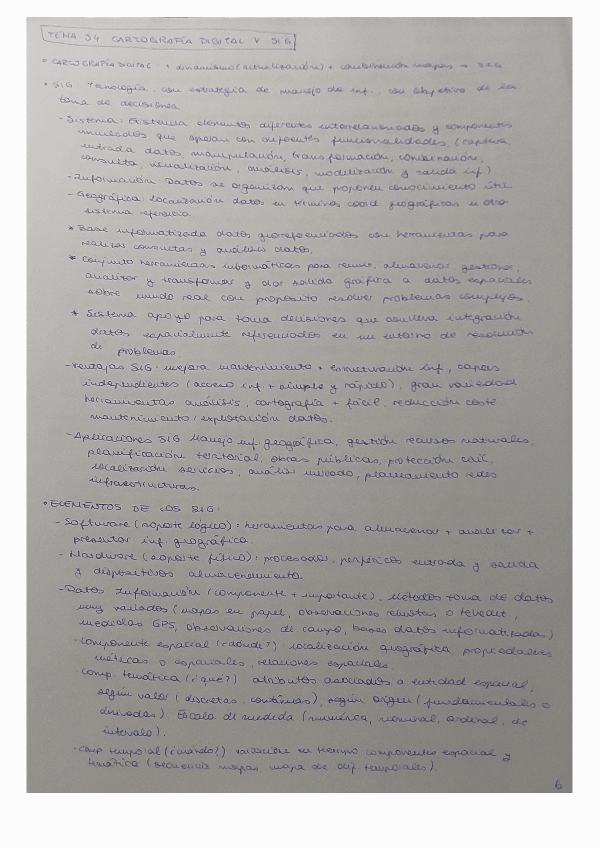 TEMA 34 CARTOGRAFÍA DIGITAL Y SIG
• CARTOGRAFÍA DIGITAL: + dinamismo (actualización) + combinación mapas → SIG
• SIG: Tecnología, con estrategia de manejo de inf., con objetivo de la
toma de decisiones
- Sistema: Existencia elementos diferentes interrelacionados y componentes
que apoyan con diferentes funcionalidades, (captura,
entrada datos, manipulación, transformación, combinación,
consulta, visualización, análisis, modelización y salida inf.)
- Información: Datos se organizan que proponen conocimiento útil.
- Geográfica: localización datos en términos coord geográficas u otro
sistema referencia.
* Base informatizada datos georreferenciados con herramientas para
realizar consultas y análisis datos.
* Conjunto herramientas informáticas para reunir, almacenar, gestionar,
analizar y transformar y dar salida gráfica a datos espaciales
sobre mundo real con propósito resolver problemas complejos.
* Sistema apoyo para toma decisiones que conlleva integración
datos espacialmente referenciados en un entorno de resolución
de problemas.
- Ventajas SIG: mejora mantenimiento + estructuración inf., capas
independientes (acceso inf. + simple y rápido), gran variedad
herramientas análisis, cartografía + fácil, reducción coste
mantenimiento/explotación datos.
- Aplicaciones SIG Manejo inf. geográfica, gestión recursos naturales,
planificación territorial, obras públicas, protección civil,
localización servicios, análisis mercado, planeamiento redes
infraestructuras.
• ELEMENTOS DE LOS SIG:
- Software (soporte lógico): herramientas para almacenar + analizar +
presentar inf. geográfica.
- Hardware (soporte físico): procesador, periféricos entrada y salida
y dispositivos almacenamiento.
- Datos Información (componente + importante). Métodos toma de datos
muy variados (mapas en papel, observaciones remotas o teledet.,
medidas GPS, observaciones de campo, bases datos informatizadas)
· Componente espacial (¿dónde?): localización geográfica, propiedades
métricas o espaciales, relaciones espaciales.
· Comp. temática (¿qué?) atributos asociados a entidad espacial,
según valor (discretas, continuas), según origen (fundamentales o
derivadas). Escala de medida (numérica, nominal, ordinal, de
intervalo).
· Comp temporal (¿cuándo?) variación en tiempo componentes espacial y
temática (secuencia mapas, mapa de dif. temporales).
6